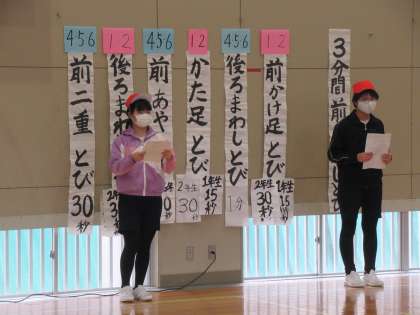 456
前二重とび30秒
12
後ろまわ
456
前あや
12
かた足とび
2年生30秒
1年生15秒
456
後ろまわしとび
1分
12
前かけ足とび
2年生30秒
1年生15秒
3分間前
しとび